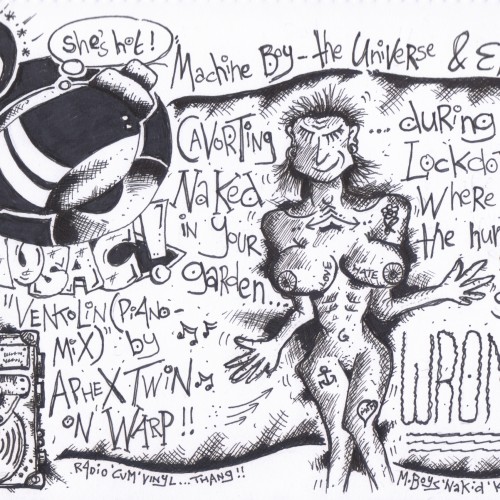 She's hot!
Machine Boy - the Universe & E
CAVORTING
Naked
in your
garden...
...during
Lockdo
Where
the hu
USAC!
"VENTOLIN (PIANO-
MIX)" by
APHEX TWIN
ON WARP!!
LOVE
HATE
WRON
RADIO 'CUM' VINYL...THANG!!
M-Boys 'Nakid'